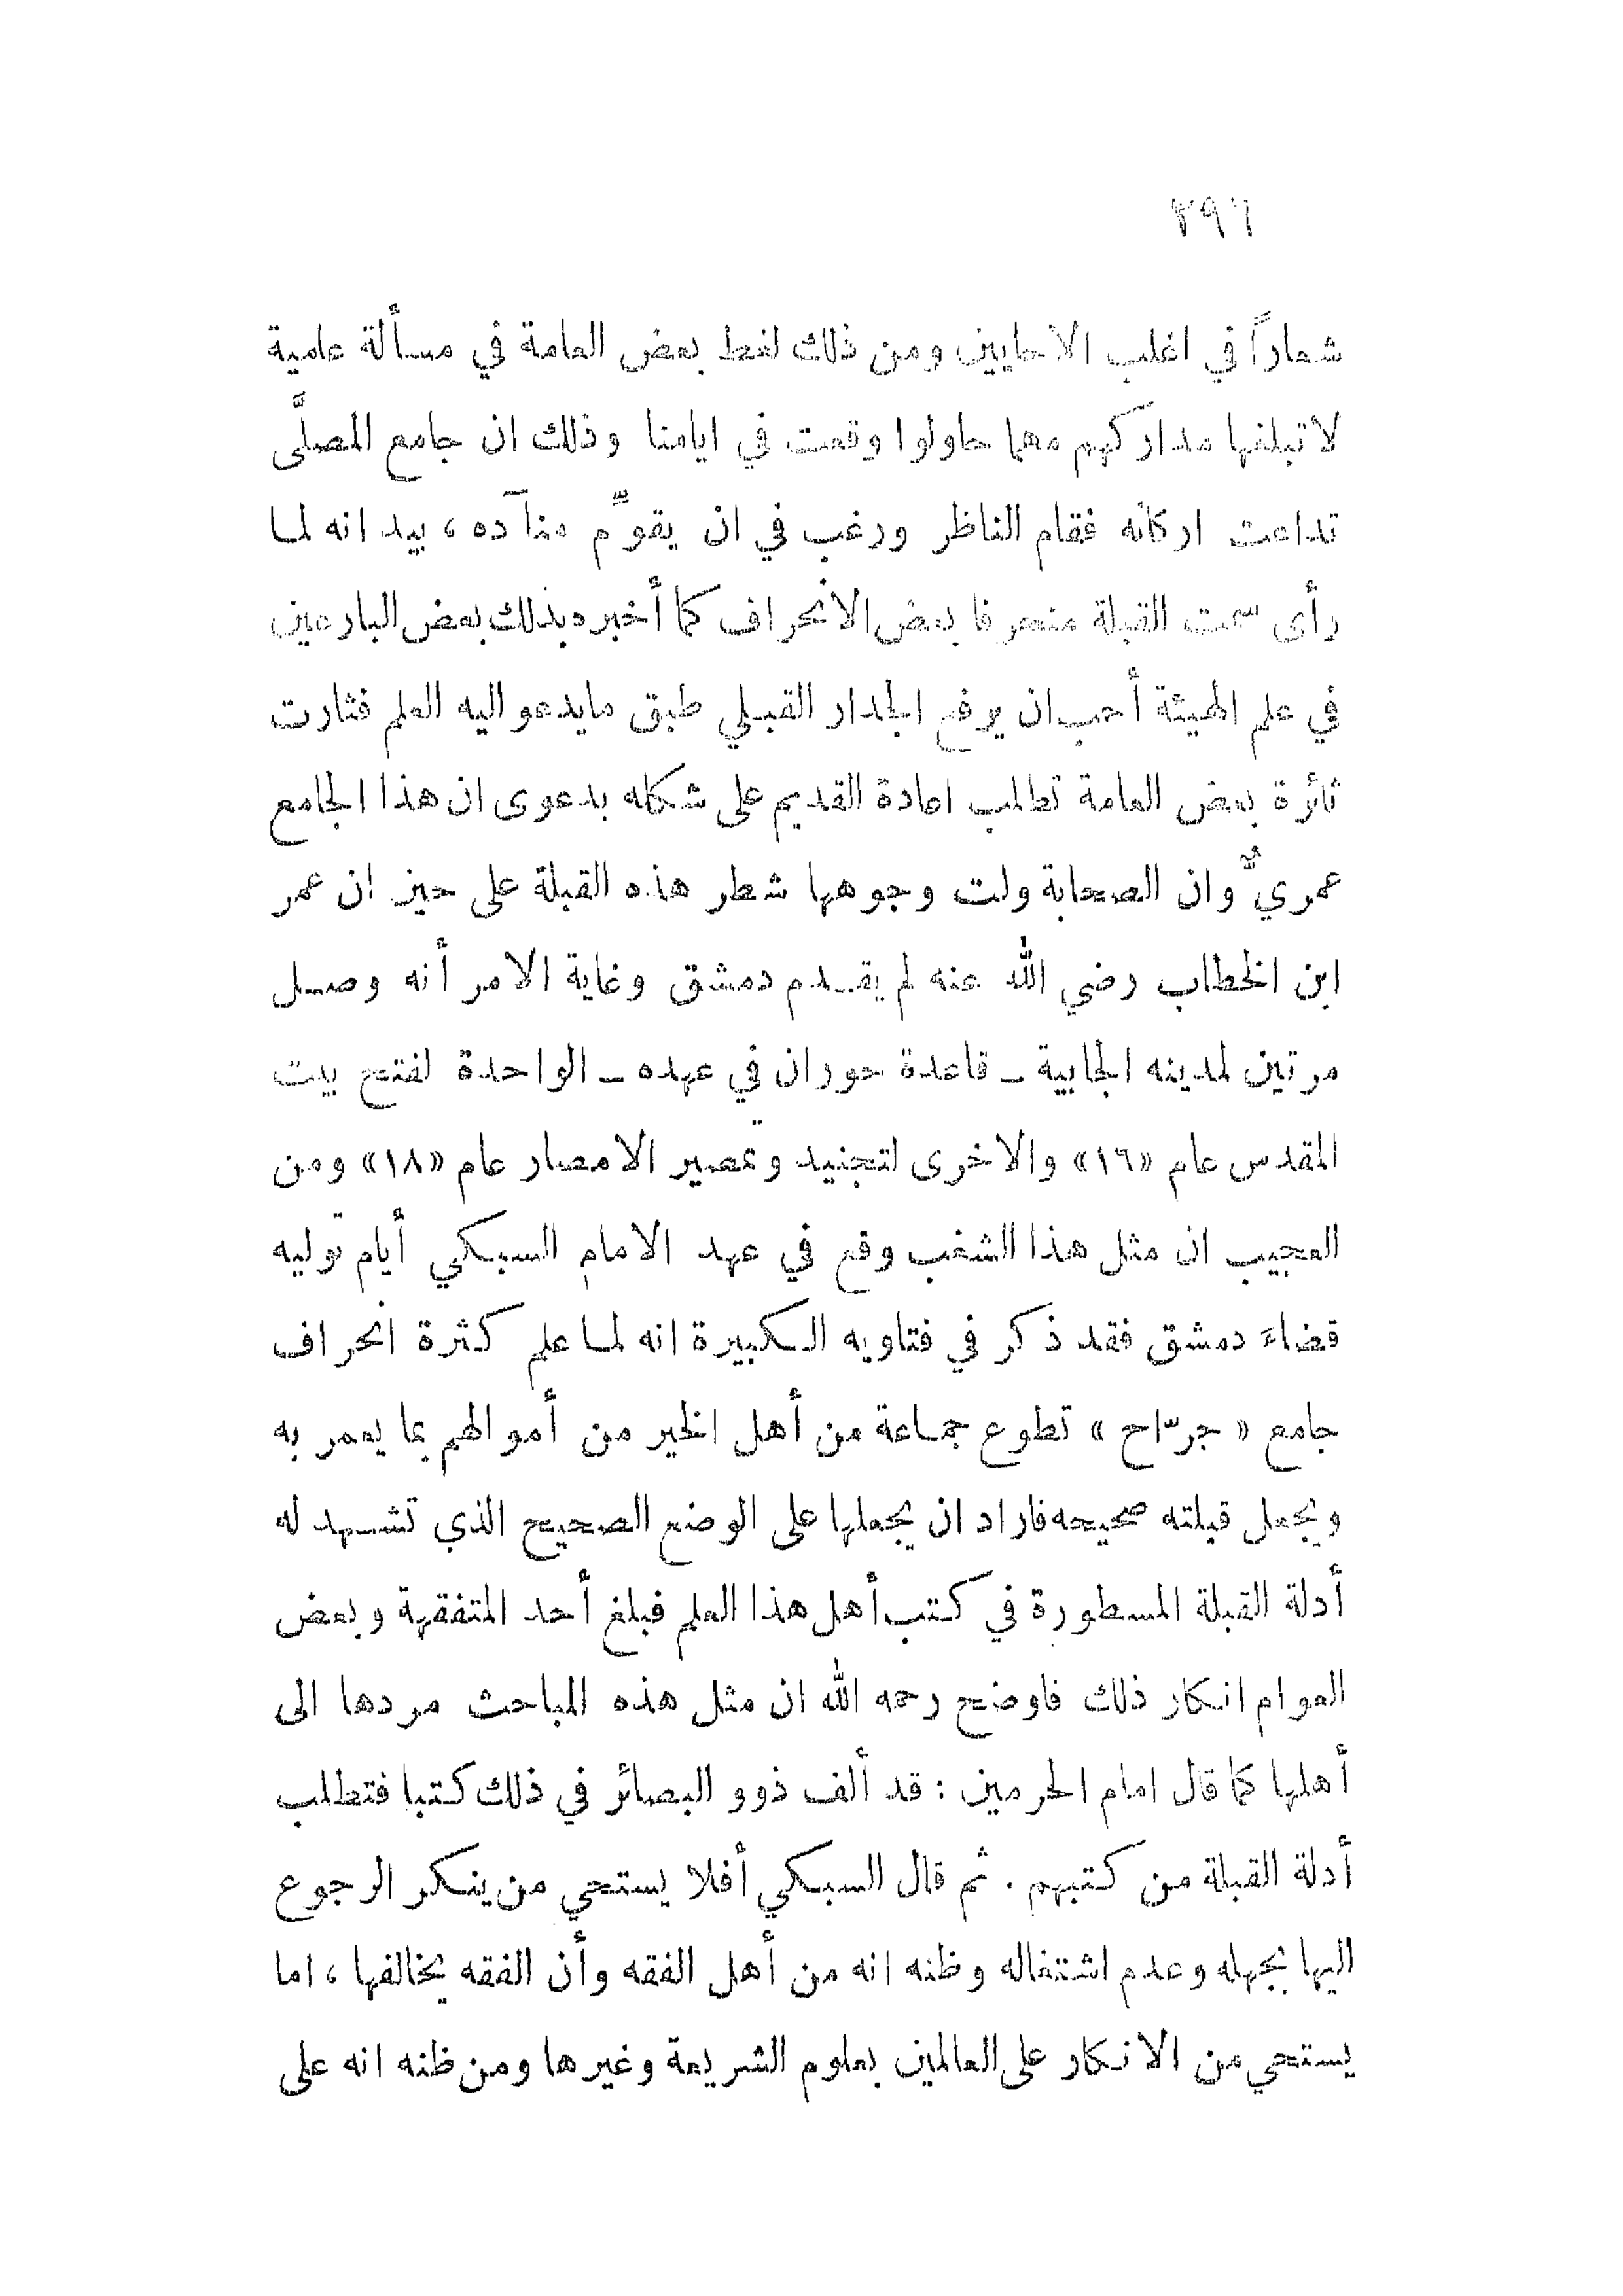 ٢٩٦
شعاراً في اغلب الاحايين ومن ذلك لغط بعض العامة في مسألة علمية
لا تبلغها مداركهم مهما حاولوا وقعت في ايامنا وذلك ان جامع المصلَّى
تداعت اركانه فقام الناظر ورغب في ان يقوِّم منآده ، بيد انه لما
رأى سمت القبلة منحرفا بعض الانحراف كما أخبره بذلك بعض البارعين
في علم الهيئة أحب ان يرفع الجدار القبلي طبق مايدعو اليه العلم فثارت
ثائرة بعض العامة تطلب اعادة القديم على شكله بدعوى ان هذا الجامع
عمريٌّ وان الصحابة ولت وجوهها شطر هذه القبلة على حين ان عمر
ابن الخطاب رضي الله عنه لم يقدم دمشق وغاية الامر أنه وصل
مرتين لمدينه الجابية ـ قاعدة حوران في عهده ـ الواحدة لفتح بيت
المقدس عام «١٦» والاخرى لتجنيد وتمصير الامصار عام «١٨» ومن
العجيب ان مثل هذا الشغب وقع في عهد الامام السبكي أيام توليه
قضاءَ دمشق فقد ذكر في فتاويه الكبيرة انه لما علم كثرة انحراف
جامع « جرّاح » تطوع جماعة من أهل الخير من أموالهم بما يعمر به
ويجعل قبلته صحيحه فاراد ان يجعلها على الوضع الصحيح الذي تشهد له
أدلة القبلة المسطورة في كتب أهل هذا العلم فبلغ أحد المتفقهة وبعض
العوام انكار ذلك فاوضح رحمه الله ان مثل هذه المباحث مردها الى
أهلها كما قال امام الحرمين : قد ألف ذوو البصائر في ذلك كتبا فتطلب
أدلة القبلة من كتبهم . ثم قال السبكي أفلا يستحي من ينكر الرجوع
اليها بجهله وعدم اشتغاله وظنه انه من أهل الفقه وأن الفقه يخالفها ، اما
يستحي من الانكار على العالمين بعلوم الشريعة وغيرها ومن ظنه انه على